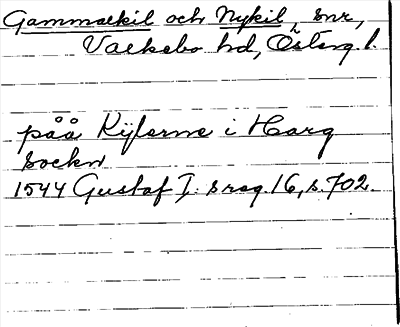 Gammalkil och Nykil, snr,
Valkebo hd, Österg. l.
påå Kijlerne i Harg
sockn
1544 Gustaf I:s reg. 16, s. 702.